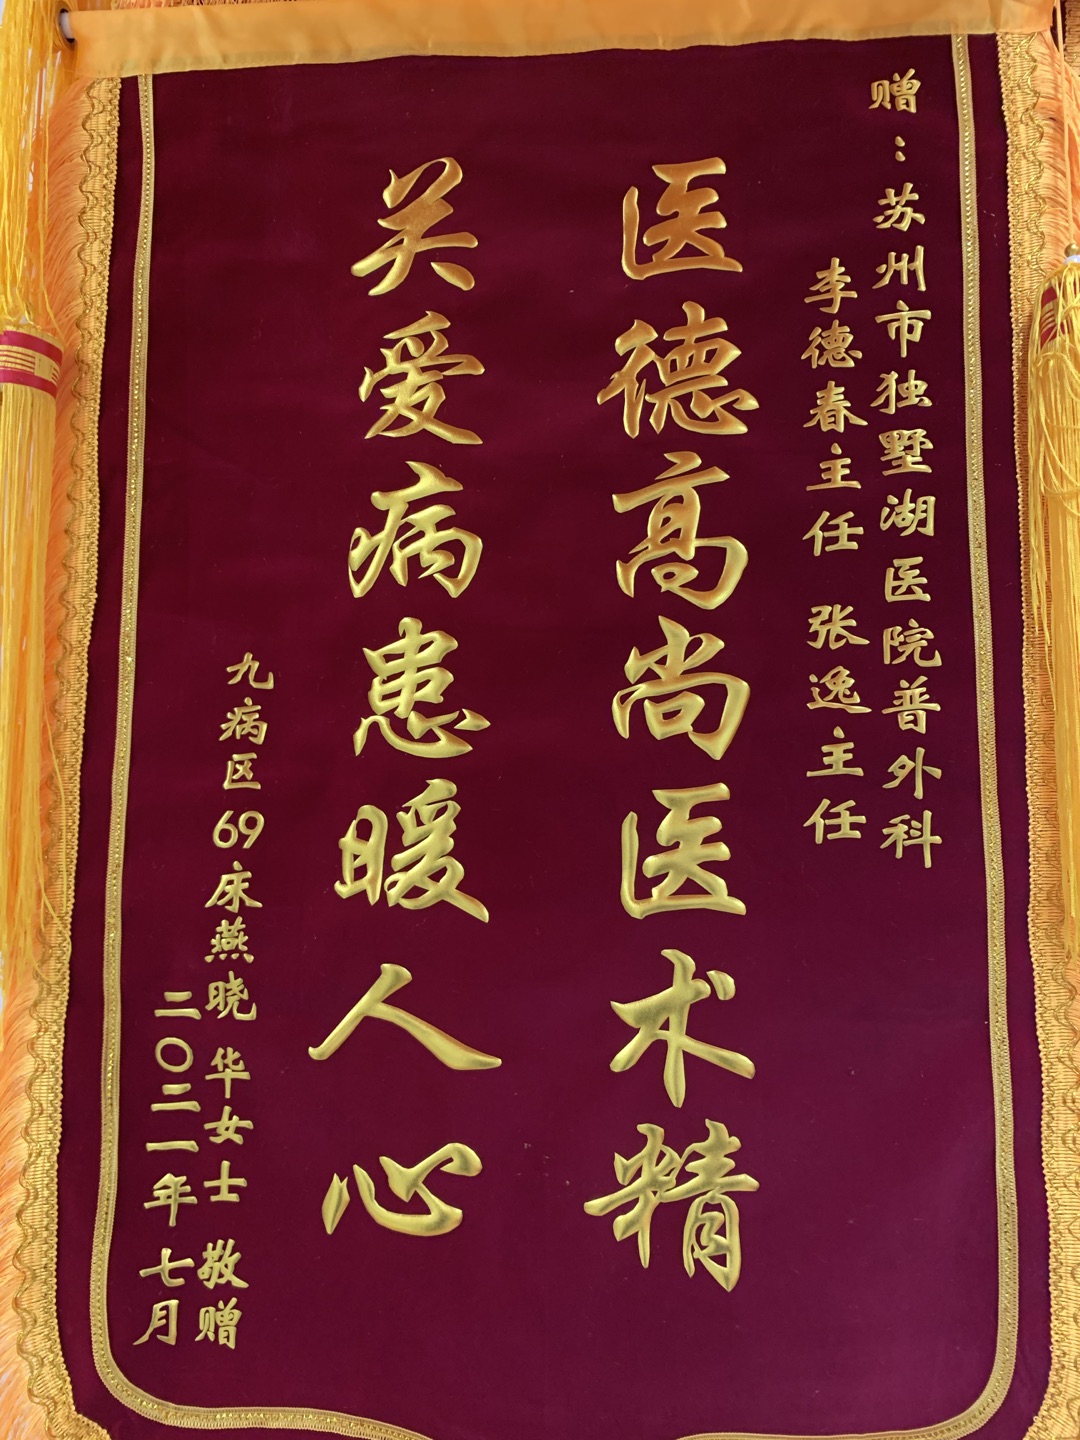 赠：苏州市独墅湖医院普外科
李德春主任 张逸主任
医德高尚医术精
关爱病患暖人心
九病区69床燕晓华女士 敬赠
二〇二一年七月